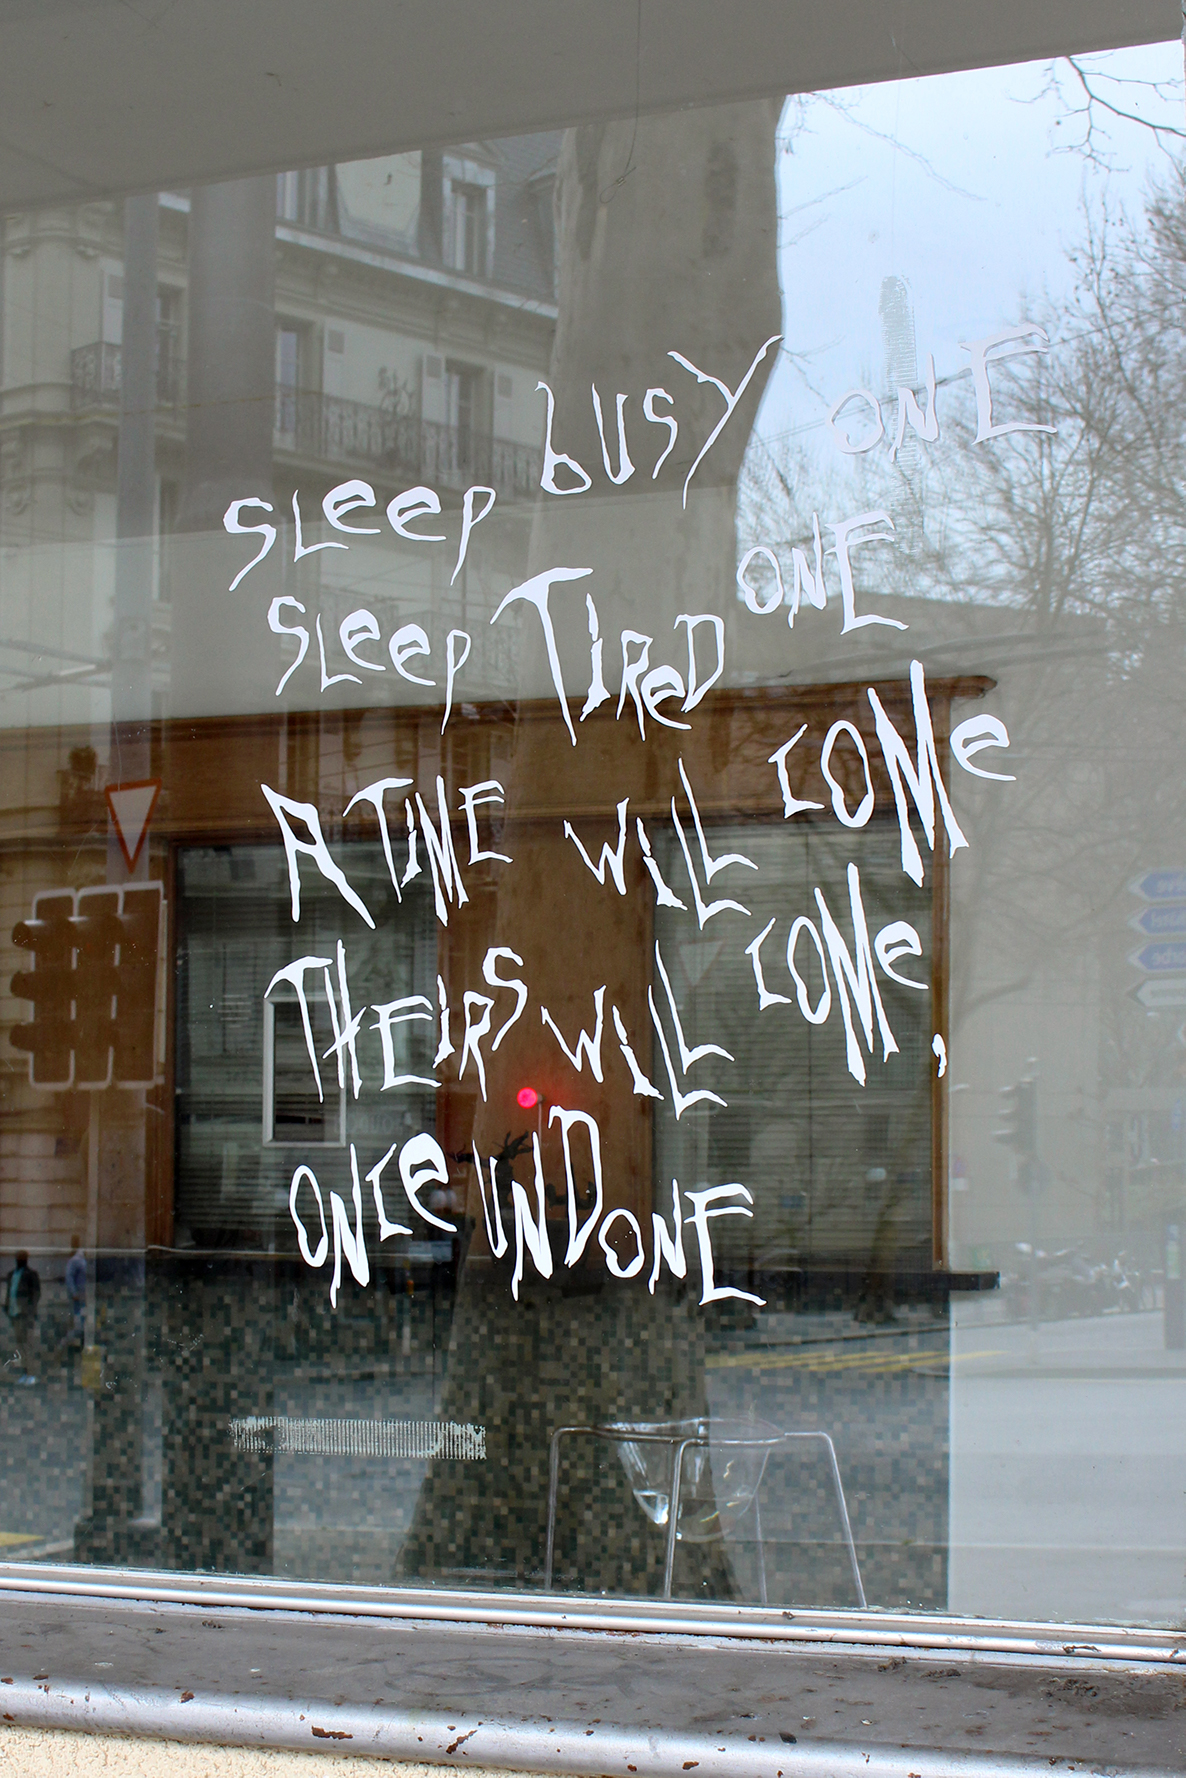 SLeep bUSY ONE
SLeep TIReD ONE
A TIME WiLL COMe
THEIRS WiLL COMe,
ONCe UNDONE